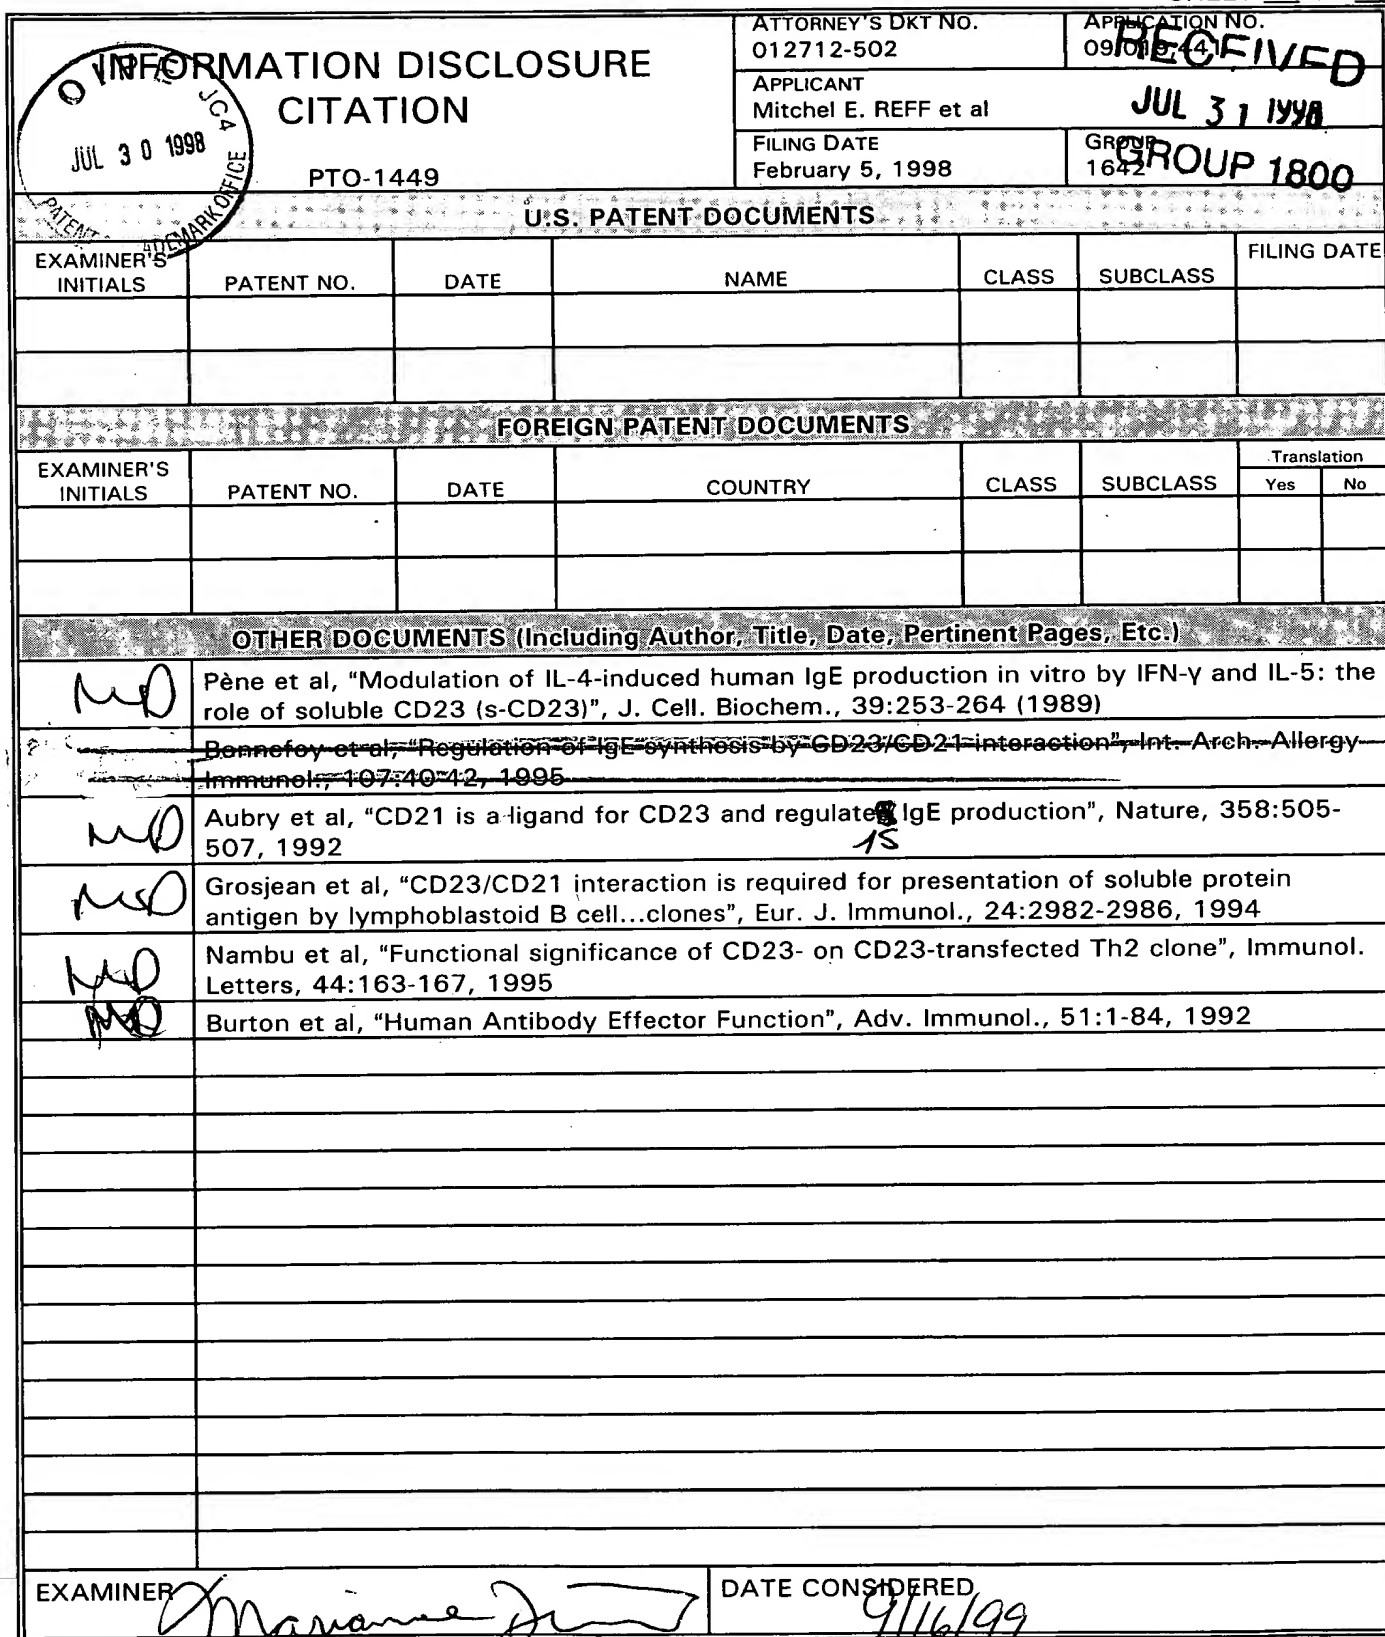 INFORMATION DISCLOSURE
CITATION
PTO-1449
O I P E JC4
JUL 30 1998
PATENT ADEMARK OFFICE
ATTORNEY'S DKT NO.
012712-502
APPLICATION NO.
RECEIVED
APPLICANT
Mitchel E. REFF et al
JUL 31 1998
FILING DATE
February 5, 1998
GROUP
1642
GROUP 1800
U.S. PATENT DOCUMENTS
EXAMINER'S INITIALS PATENT NO. DATE NAME CLASS SUBCLASS FILING DATE
FOREIGN PATENT DOCUMENTS
EXAMINER'S INITIALS PATENT NO. DATE COUNTRY CLASS SUBCLASS Translation
Yes No
OTHER DOCUMENTS (Including Author, Title, Date, Pertinent Pages, Etc.)
MD Pène et al, "Modulation of IL-4-induced human IgE production in vitro by IFN-γ and IL-5: the
role of soluble CD23 (s-CD23)", J. Cell. Biochem., 39:253-264 (1989)
Bonnefoy et al, "Regulation of IgE synthesis by CD23/CD21 interaction", Int. Arch. Allergy
Immunol., 107:40-42, 1995
MD Aubry et al, "CD21 is a ligand for CD23 and regulates IgE production", Nature, 358:505-
507, 1992
MD Grosjean et al, "CD23/CD21 interaction is required for presentation of soluble protein
antigen by lymphoblastoid B cell...clones", Eur. J. Immunol., 24:2982-2986, 1994
MD Nambu et al, "Functional significance of CD23- on CD23-transfected Th2 clone", Immunol.
Letters, 44:163-167, 1995
MD Burton et al, "Human Antibody Effector Function", Adv. Immunol., 51:1-84, 1992
EXAMINER Marianne
DATE CONSIDERED
9/16/99